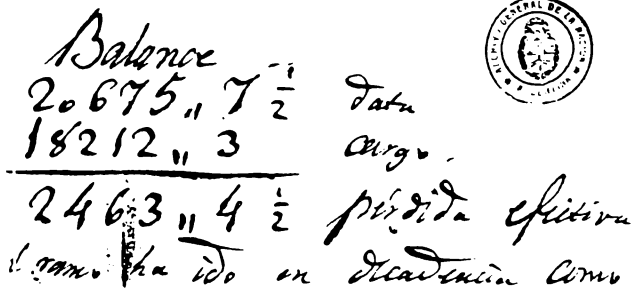 Balance
20.675,, 7 1/2 data
18212,, 3 cargo.
2463,, 4 1/2 pérdida efectiva
el ramo ha ido en decadencia como
ARCHIVO GENERAL DE LA NACION